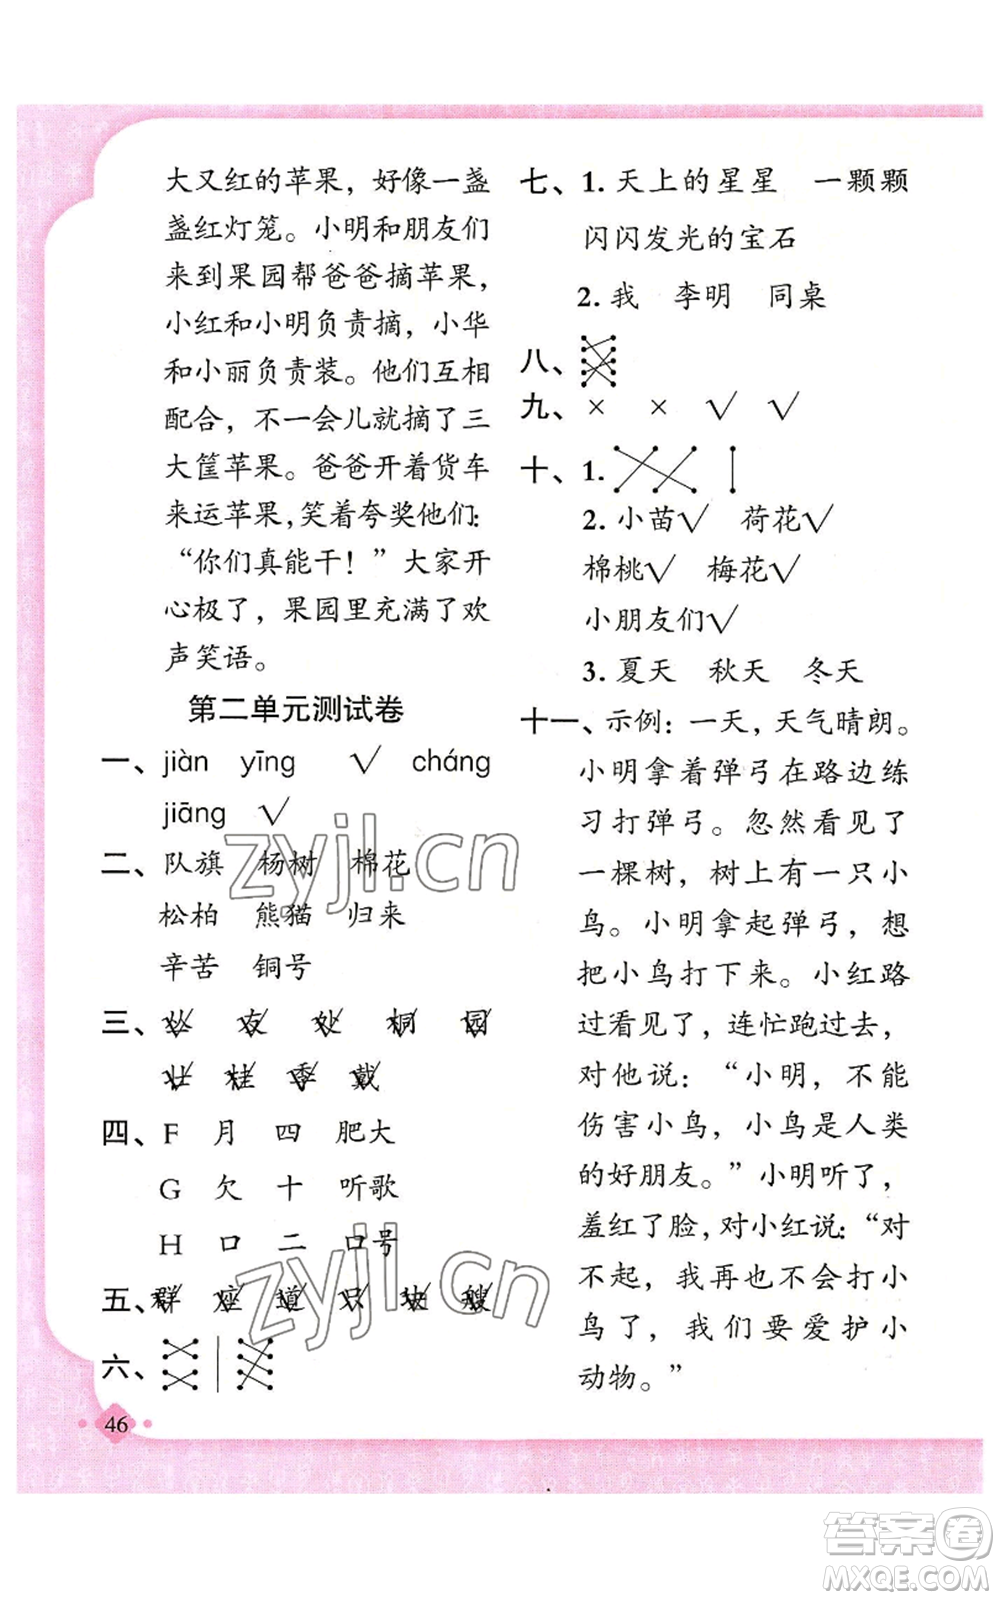 大又红的苹果，好像一盏
盏红灯笼。小明和朋友们
来到果园帮爸爸摘苹果，
小红和小明负责摘，小华
和小丽负责装。他们互相
配合，不一会儿就摘了三
大筐苹果。爸爸开着货车
来运苹果，笑着夸奖他们：
“你们真能干！”大家开
心极了，果园里充满了欢
声笑语。
第二单元测试卷
一、jiàn yīng √ cháng
jiāng √
二、队旗 杨树 棉花
松柏 熊猫 归来
辛苦 铜号
三、丛 友 处 桐 园
壮 桂 季 戴
四、F 月 四 肥大
G 欠 十 听歌
H 口 二 口号
五、群 座 道 只 块 艘
六、
46
七、1. 天上的星星 一颗颗
闪闪发光的宝石
2. 我 李明 同桌
八、
九、× × √ √
十、1.
2. 小苗√ 荷花√
棉桃√ 梅花√
小朋友们√
3. 夏天 秋天 冬天
十一、示例：一天，天气晴朗。
小明拿着弹弓在路边练
习打弹弓。忽然看见了
一棵树，树上有一只小
鸟。小明拿起弹弓，想
把小鸟打下来。小红路
过看见了，连忙跑过去，
对他说：“小明，不能
伤害小鸟，小鸟是人类
的好朋友。”小明听了，
羞红了脸，对小红说：“对
不起，我再也不会打小
鸟了，我们要爱护小
动物。”
zyjl.cn
zyjl.cn
答案卷
MXQE.COM